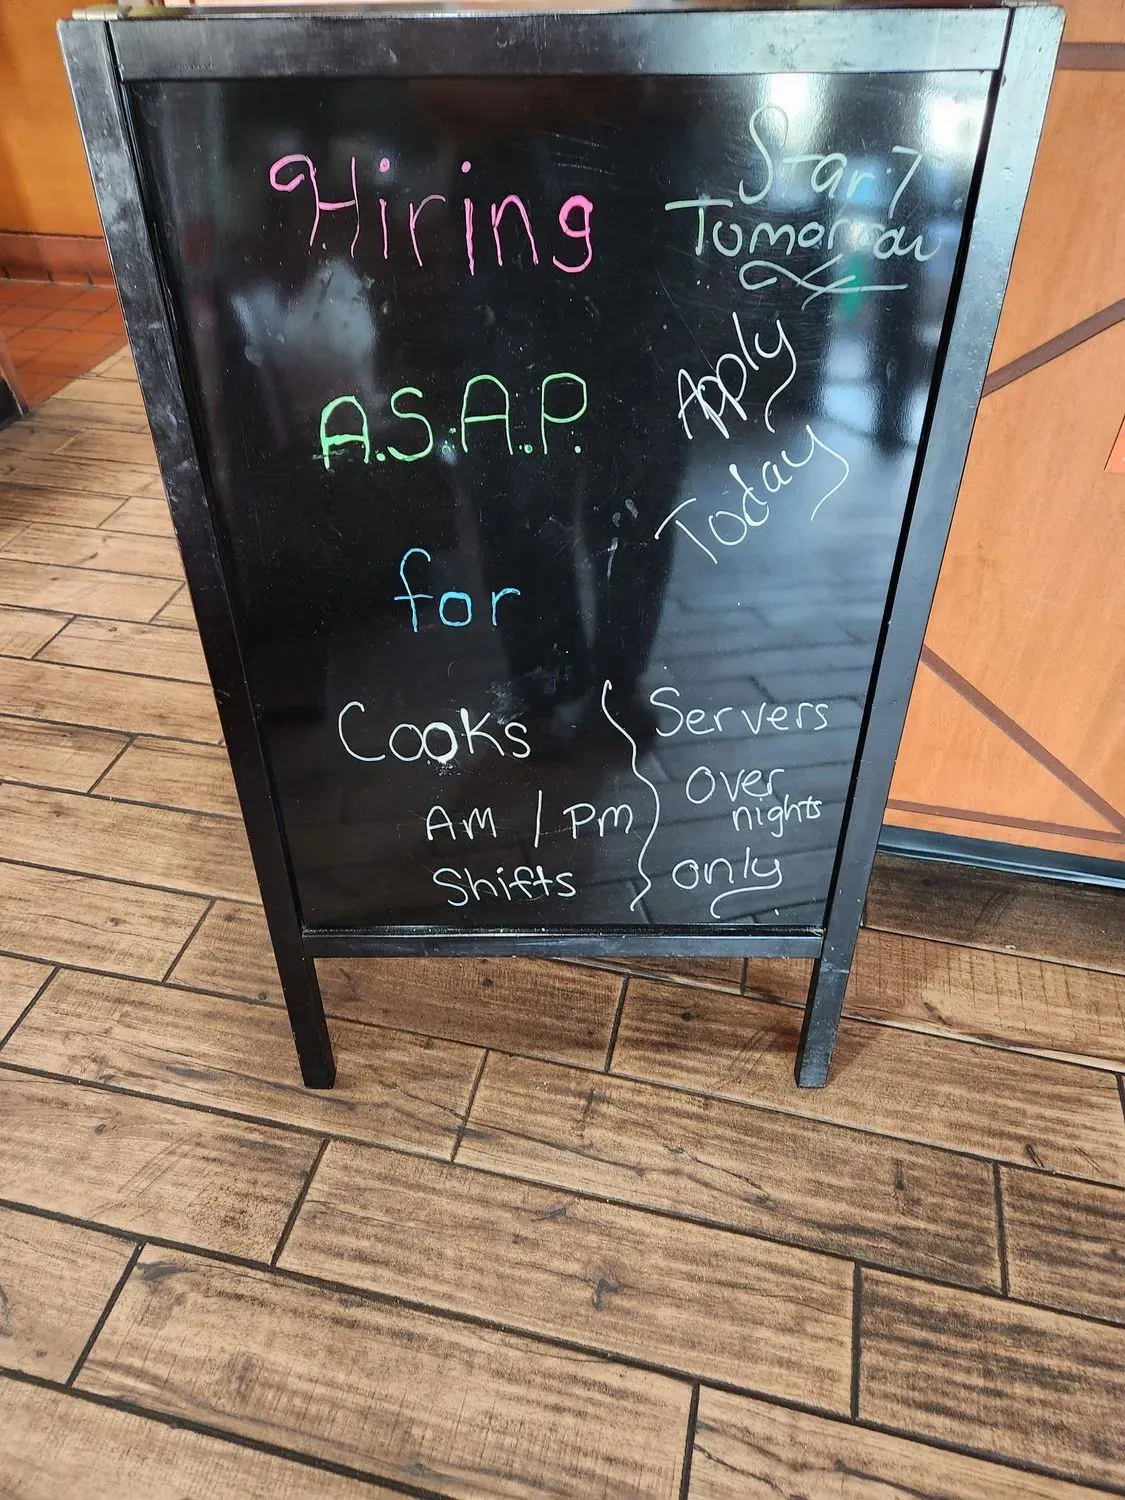 Hiring
A.S.A.P.
for
Cooks
Am / Pm
Shifts
Start
Tomorrow
Apply
Today
Servers
Over
nights
only